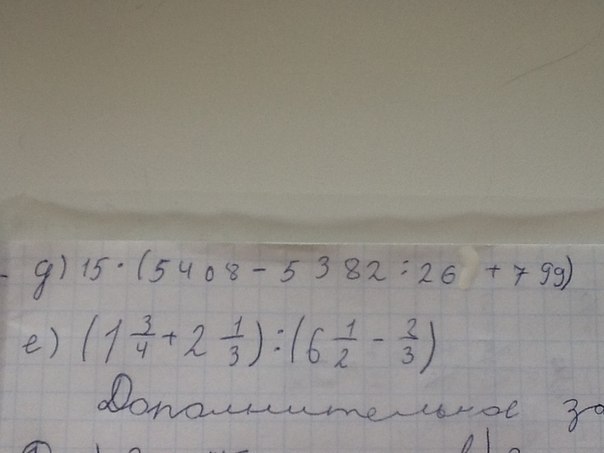 д) 15 · (5408 - 5382 : 26 + 799)
е) (1 3/4 + 2 1/3) : (6 1/2 - 2/3)
Дополнительное за